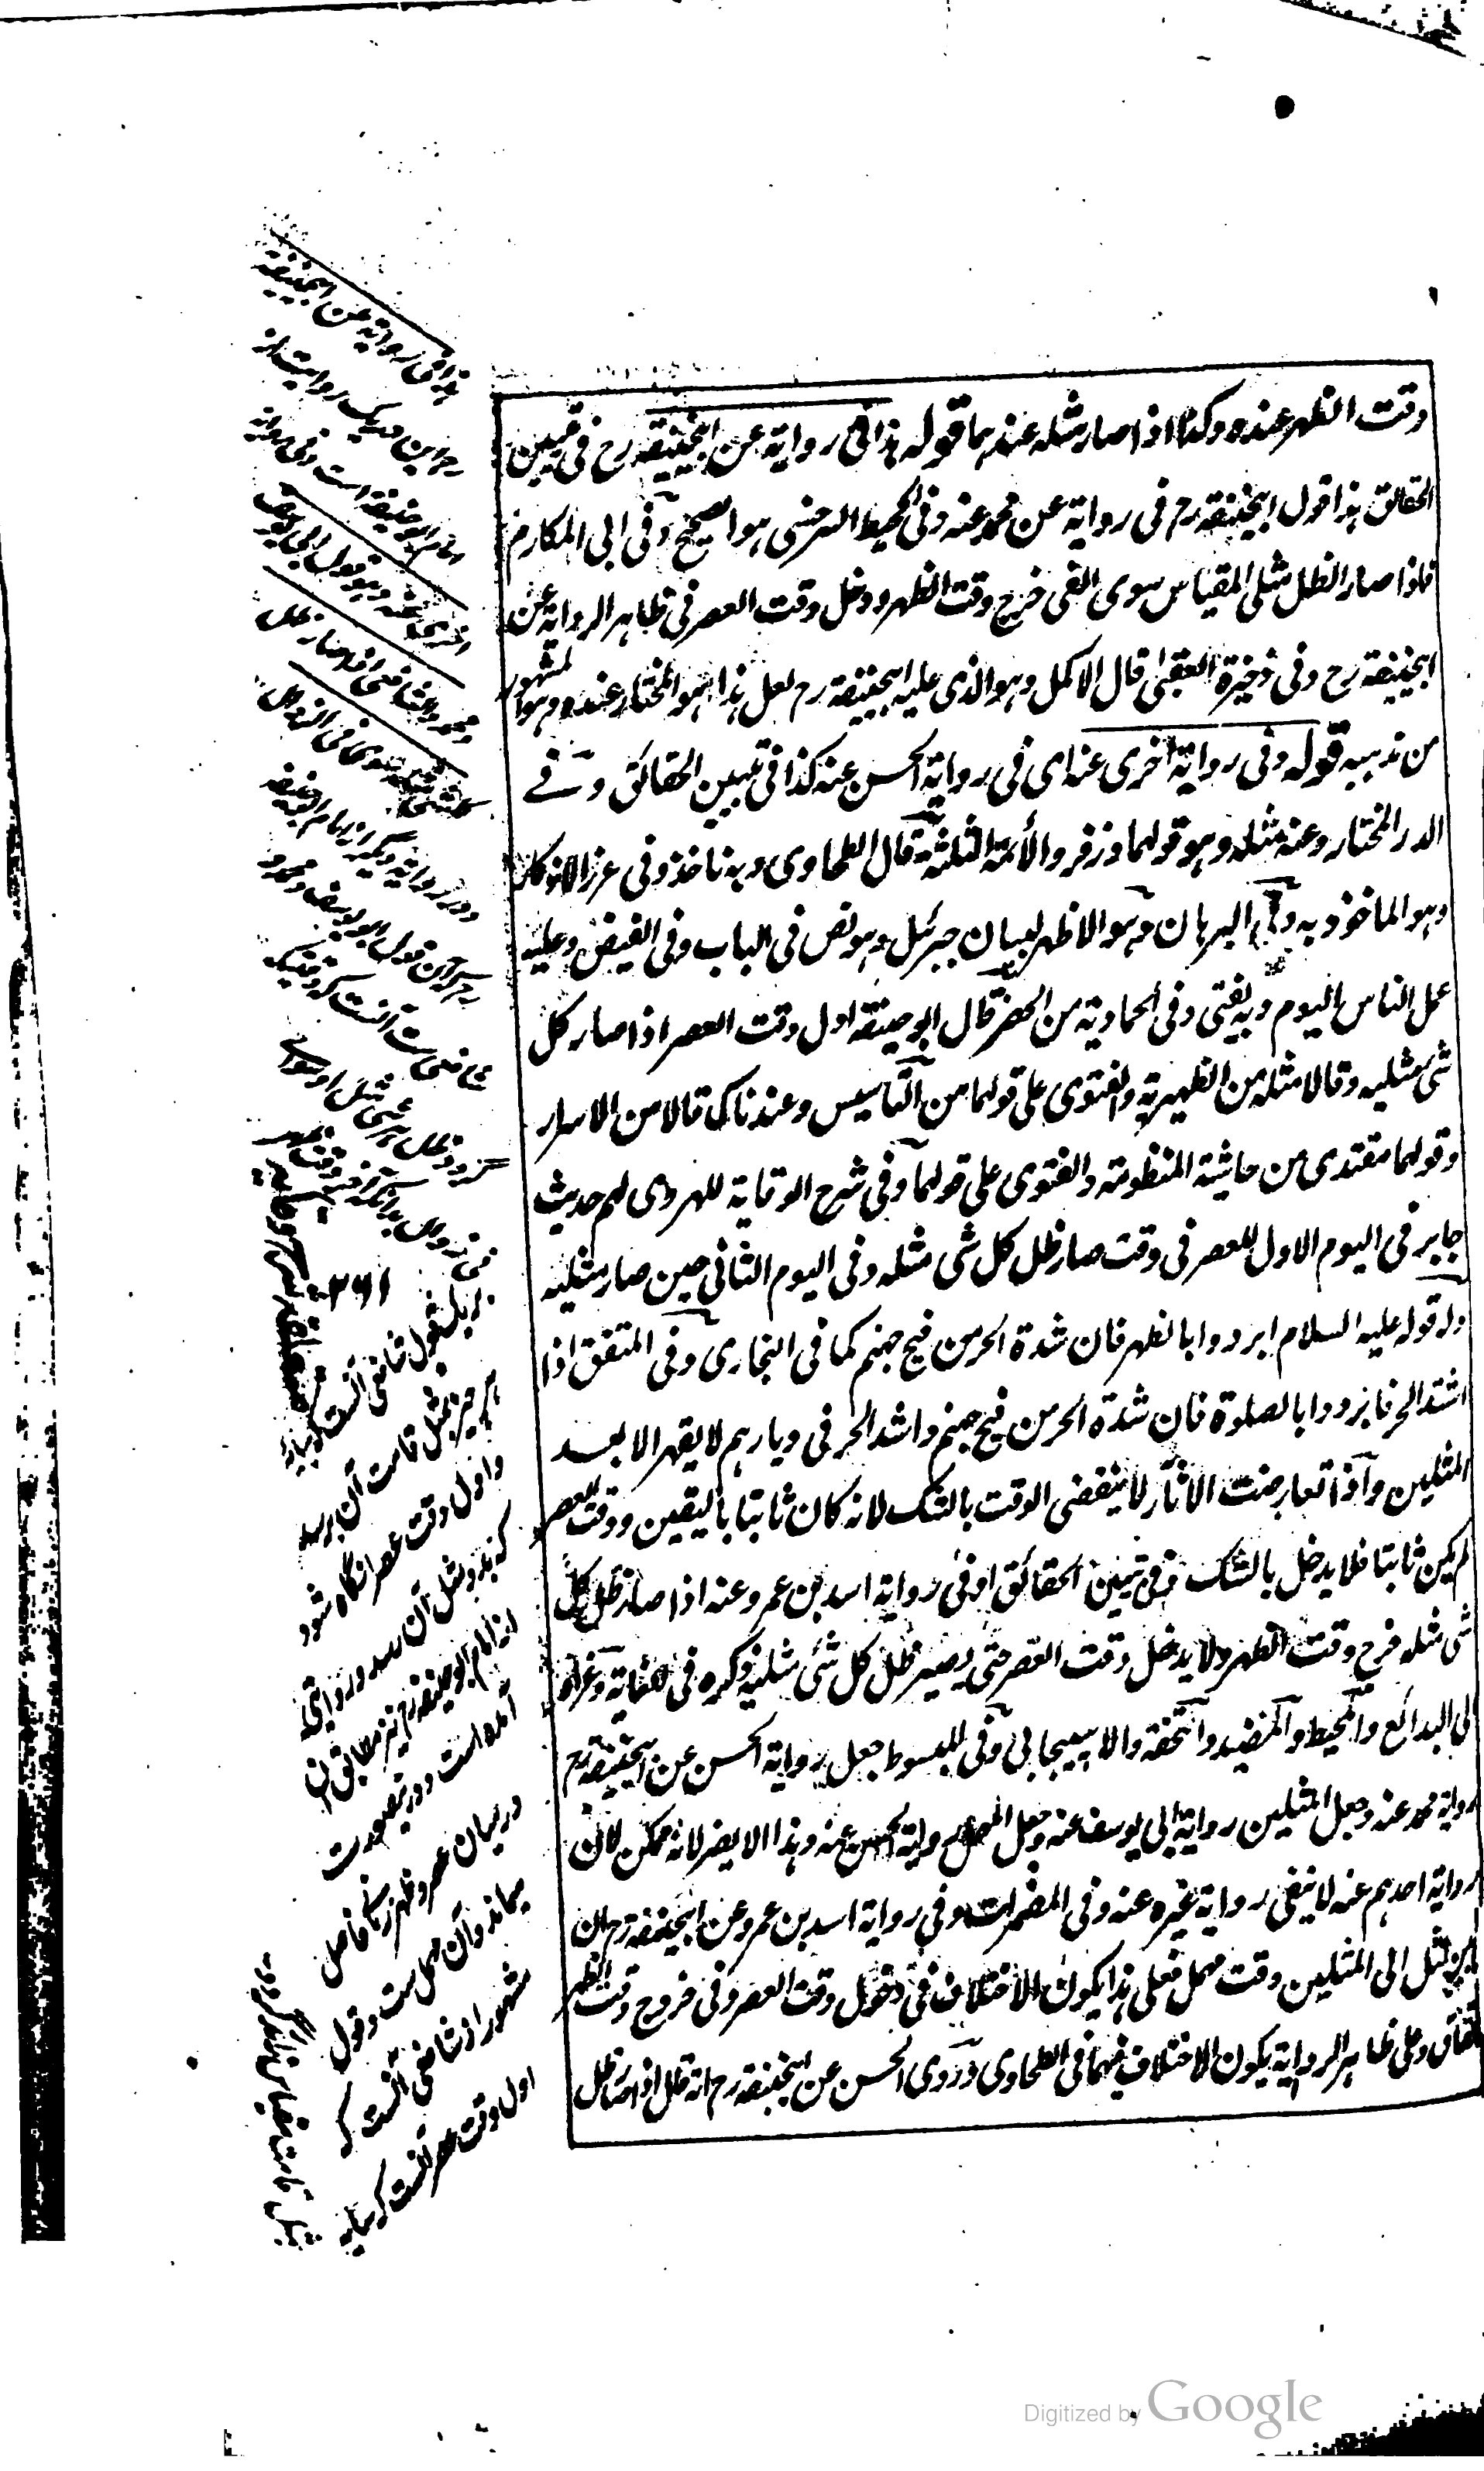 وقت الظهر عنده وكذا اذا صار مثله عندهما قوله هذا فى رواية عن ابيحنيفة رح فى تبيين
الحقائق هذا قول ابيحنيفة رم فى رواية عن محمد عنه وفى المحيط السرخسى هو الصحيح وفى ابى المكارم
فاذا صار الظل مثلى المقياس سوى الفئ خرج وقت الظهر ودخل وقت العصر فى ظاهر الرواية عن
ابيحنيفة رح وفى ذخيرة العقبى قال الاكمل وهو الذى عليه ابيحنيفة رم لعل هذا هو المختار عنده وهو المشهور
من مذهبه قوله وفى رواية اخرى عنه اى فى رواية الحسن عنه كذا فى تبيين الحقائق و فے
الدر المختار وعنه مثله وهو قولهما وزفر والأئمة الثلثة قال الطحاوى وبه ناخذ وفى غرر الاذكار
وهو الماخوذ به وفى البرهان وهو الاظهر لبيان جبرئيل وهو نص فى الباب وفى الفيض وعليه
عمل الناس اليوم وبه يفتى وفى الحمادية من الحصر قال ابو حنيفة اول وقت العصر اذا صار كل
شئ مثليه وقالا مثله من الظهيرية والفتوى على قولهما من التاسيس وعندناك قالا من الاسرار
وقولهما مقتدى من حاشية المنظومة والفتوى على قولهما وفى شرح الوقاية للهروى لهم حديث
جابر فى اليوم الاول للعصر فى وقت صار ظل كل شى مثله وفى اليوم الثانى حين صار مثليه
وله قوله عليه السلام ابردوا بالظهر فان شدة الحر من فيح جهنم كما فى البخارى وفى المتفق اذا
اشتد الحر فابردوا بالصلوة فان شدة الحر من فيح جهنم واشد الحر فى ديارهم لا يقهر الا بعد
المثلين وآذا تعارضت الاثار لا ينقضى الوقت بالشك لانه كان ثابتا باليقين ووقت العصر
لم يكن ثابتا فلا يدخل بالشك وفى تبيين الحقائق وفى رواية اسد بن عمر وعنه اذا صار ظل كل
شى مثله خرج وقت الظهر ولا يدخل وقت العصر حتى يصير ظل كل شئ مثليه ذكره فى النهاية وعزاه
الى البدائع والمحيط والمفيد والتحفة والاسبيجابى وفى المبسوط جعل رواية الحسن عن ابيحنيفة رم
رواية محمد عنه وجعل المثلين رواية ابى يوسف عنه وجعل المهمل رواية الحسن عنه وهذا الا يضر لانه ممكن لان
رواية احدهم عنه لا ينفى رواية غيره عنه وفى المضمرات وفى رواية اسد بن عمر وعن ابيحنيفة رم ان
بين المثل الى المثلين وقت مهمل فعلى هذا يكون الاختلاف فى دخول وقت العصر وفى خروج وقت الظهر
اتفاق وعلى ظاهر الرواية يكون الاختلاف فيهما فى الطحاوى وروى الحسن عن ابيحنيفة رم انه قال اذا صار ظل
هذا فى رواية عن ابيحنيفة
رح اين در يك روايت از
امام ابو حنيفه است وفى رواية
اخرى عنه وهو قول ابى يوسف
ومحمد والشافعى اذا صار ظل
كل شئ مثله سوى فئ الزوال
ودر رواية ديگر از امام ابو حنيفه
رح كه همين قول ابو يوسف ومحمد و
شافعى ست آنست كه وقتيكه
گردد ظل هر شى مثل او سواى
فئ زوال بدانكه آخر وقت ظهر
۲۶۱
بر يك قول شافعى آنست كه سايه
هر چيز بمثل قامت آن برسد
واول وقت عصر آنگاه شود
كه بدو مثل آن رسد ودر روايتى
از امام ابو حنيفه رم نيز مطابق آن
آمده است ودرينصورت
درميان عصر وظهر زمان فاصل
ميماند وآن مهمل ست وقول
مشهور از شافعى آنست كه
اول وقت عصر آنست كه سايه
بمثل قامت مقياس زياده گردد